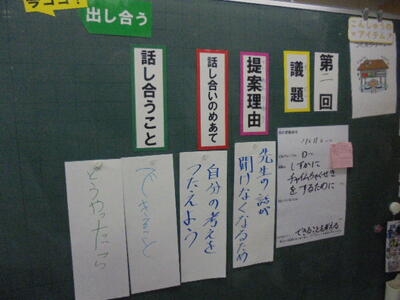 今ココ！
出し合う
こんしゅうの
アイテム
第二回
議題
提案理由
話し合いのめあて
話し合うこと
しずかに
チャイムちゃくせき
をするために
できることを考える
先生の話が
聞けなくなるため
自分の考えを
つたえよう
できること
どうやったら